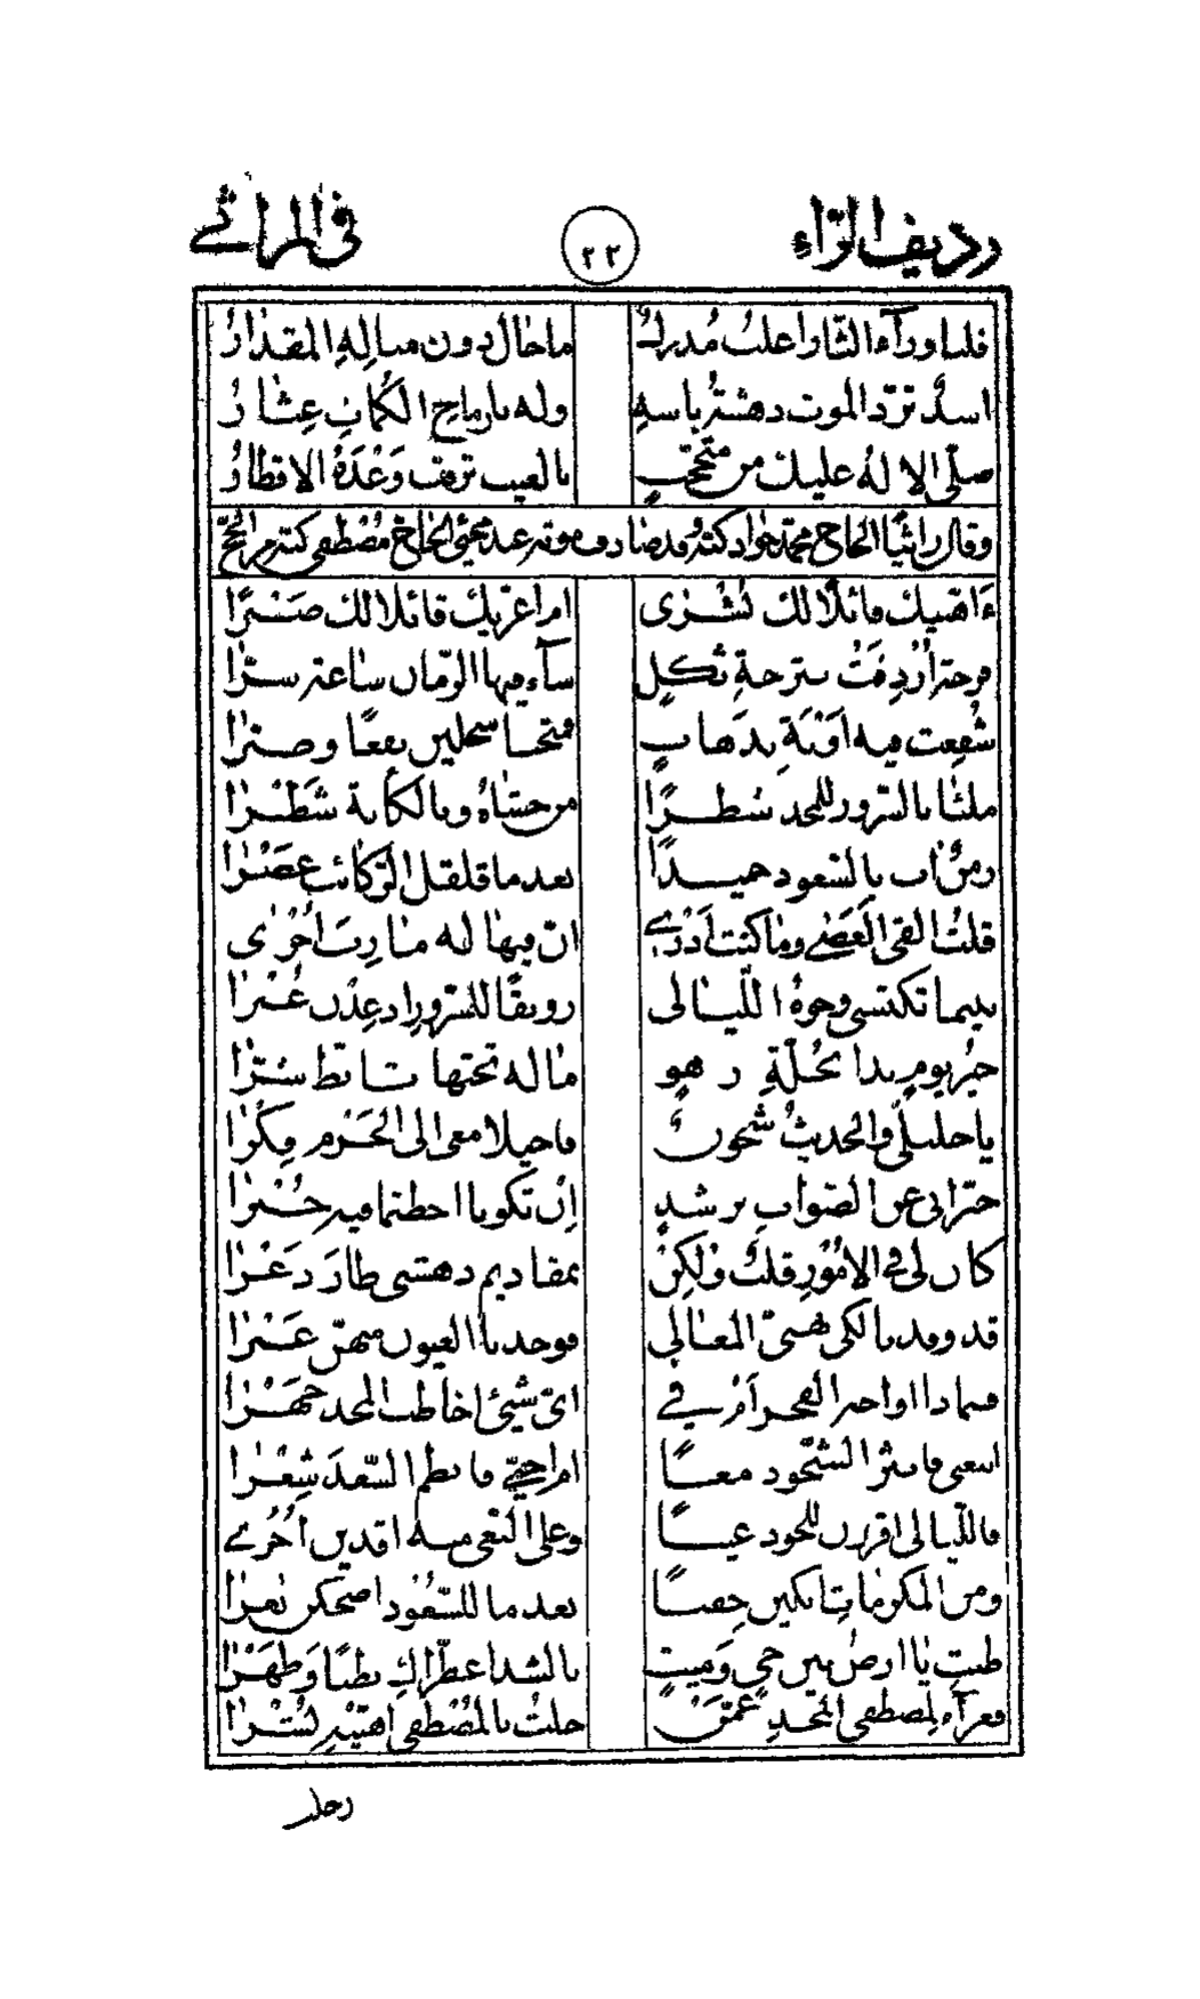 رديف الرّاء ٢٢ في المراثي
فلما ورآء الثار اغلب مُدرك ما خال دون مناله المقدارُ
اسدٌ تردّ الموت دهشتُه باسه وله بارماح الكماةِ عِثارُ
صلّى الإلهُ عليك من متحجّبٍ بالغيب ترقب وَعْدَهُ الاقطارُ
وقال راثيًا الحاج محمّد جواد كبّه وقد صادف موته عند مجيئ الحاج مُصْطفى كبّه من الحجّ
ءَاهنّيك قائلًا لك بُشْرى ام اعزّيك قائلا لك صَبْرًا
فرحة أُردِفَتْ بترحةِ ثكلٍ سآء فيها الزّمان ساعة سرّا
شُفِعت فيه اَوْبَةٌ بذَهابٍ نفعًا وضرّا
ملئتا بالسّرور للمجد شطرًا من حشاهُ وبالكأبة شَطْرا
زمنٌ آب بالسّعود حميدًا بعد ما قلقل الرّكائب عصْرا
قلتُ القى العَصى وما كنت اَدْري انّ فيها له مآرِبَ أُخْرى
بينما تكتسى وجوهُ اللّيالى رونقًا للسّرور اذ عِدْن غُبْرا
خيرُ يومٍ بدا بحُلّةِ زهوٍ ما له تحتها تابّط شرّا
يا خليلىّ والحديثُ شجونٌ قاحيلا معى الى الحَزْم فِكْرا
خبّرانى عن الصّوابِ برشدٍ إن تكونا احطتما فيه خُبْرا
كان لى في الامُورِ قلبٌ ولكِنْ بمقاديم دهشتى طارَ ذعْرا
قد وفدنا لكى نهنّى المعالى فوجدنا العيون منهنّ عَبْرا
فبماذا اواجه الفخر اَمْ في ايّ شيئ اخاطب المجد جَهْرا
انعى فانثر الشّجود معنًا ام احيّي فانظم السّعدَ شِعْرا
ما للّيالى اقررن للجود عينًا وعلى النعى منه اقذين اُخْرى
ومن المكرُماتِ ابكين جفنًا بعد ما للسّعُود اضحكن ثغرا
طبتِ يا ارضُ بين حىٍ ومَيتٍ بالشذا عطّراك بطنًا وَظهْرا
فعزآء لمصطفى المجدِ عمّنْ جلبتْ بالمُصْطفى اهنّيهِ بُشْرا
رحلت